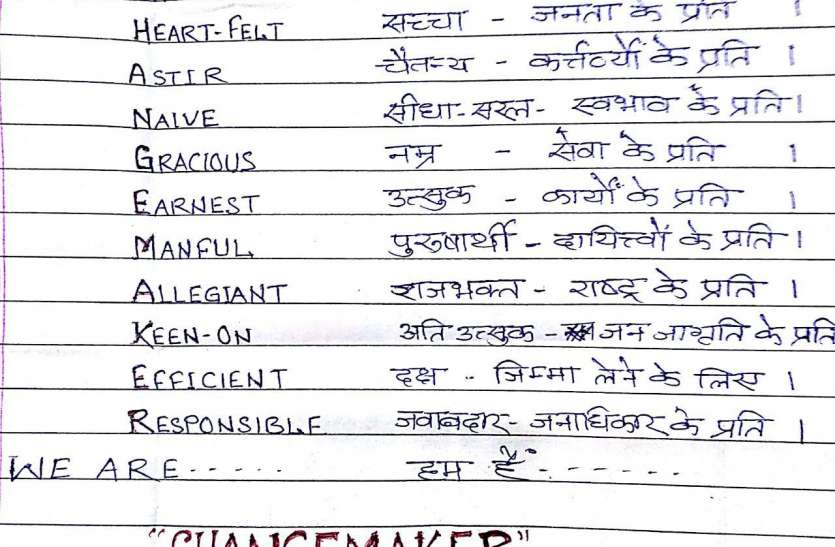 HEART-FELT सच्चा - जनता के प्रति ।
ASTIR चैतन्य - कर्त्तव्यों के प्रति ।
NAIVE सीधा-सरल- स्वभाव के प्रति।
GRACIOUS नम्र - सेवा के प्रति ।
EARNEST उत्सुक - कार्यों के प्रति ।
MANFUL पुरुषार्थी - दायित्त्वों के प्रति ।
ALLEGIANT राजभक्त - राष्ट्र के प्रति ।
KEEN-ON अति उत्सुक - जन जागृति के प्रति
EFFICIENT दक्ष - जिम्मा लेने के लिए ।
RESPONSIBLE जवाबदार- जनाधिकार के प्रति ।
WE ARE ----- हम हैं -------
"CHANGEMAKER"